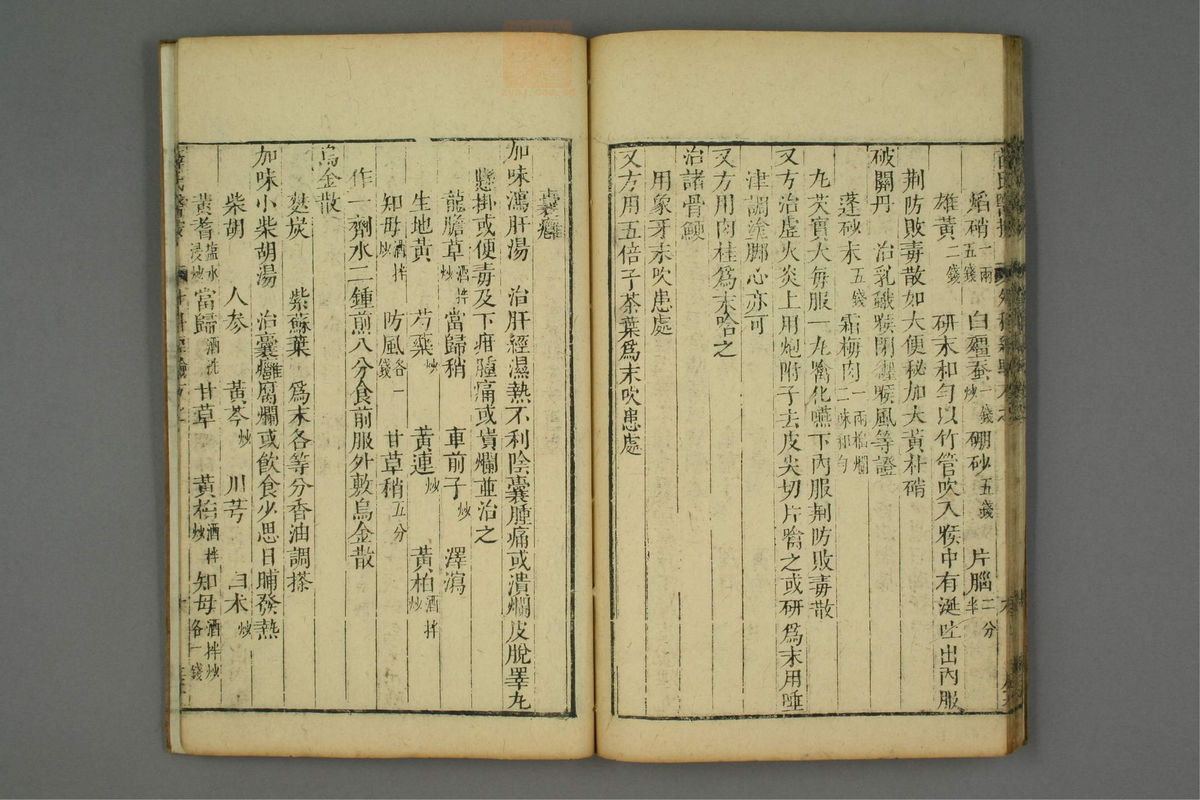 焰硝一兩五錢 白殭蚕一錢炒 硼砂五錢 片腦二分半
雄黃二錢 研末和勻以竹管吹入喉中有涎吐出內服
荆防敗毒散如大便秘加大黃朴硝
破關丹 治乳蛾喉閉纏喉風等證
蓬砂末五錢 霜梅肉一兩搗爛二味和勻
丸芡實大每服一丸噙化嚥下內服荆防敗毒散
又方治虛火炎上用炮附子去皮尖切片噙之或研爲末用唾
津調塗脚心亦可
又方用肉桂爲末噙之
治諸骨鯁
用象牙末吹患處
又方用五倍子茶葉爲末吹患處
囊癰
加味瀉肝湯 治肝經濕熱不利陰囊腫痛或潰爛皮脫睪丸
懸掛或便毒及下疳腫痛或潰爛並治之
龍膽草酒拌炒 當歸稍 車前子炒 澤瀉
生地黃 芍藥炒 黃連炒 黃柏酒拌炒
知母酒拌炒 防風各一錢 甘草稍五分
作一劑水二鍾煎八分食前服外敷烏金散
烏金散
麩炭 紫蘇葉 爲末各等分香油調搽
加味小柴胡湯 治囊癰腐爛或飲食少思日晡發熱
柴胡 人参 黃芩炒 川芎 白术炒
黃耆塩水浸炒 當歸酒洗 甘草 黃柏酒拌炒 知母酒拌炒各一錢